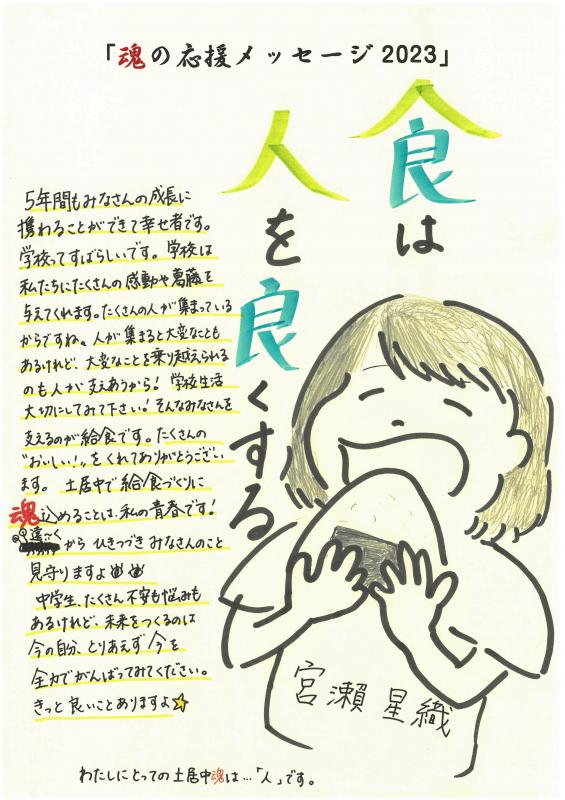 「魂の応援メッセージ2023」
食は
人を良くする
5年間もみなさんの成長に
携わることができて幸せ者です。
学校ってすばらしいです。学校は
私たちにたくさんの感動や葛藤を
与えてくれます。たくさんの人が集まっている
からですね。人が集まると大変なことも
あるけれど、大変なことを乗り越えられる
のも人が支えあうから!学校生活
大切にしてみて下さい!そんなみなさんを
支えるのが給食です。たくさんの
"おいしい!"をくれてありがとうござい
ます。土居中で給食づくりに
魂込めることは、私の青春です!
遠くからひきつづきみなさんのこと
見守りますよ
中学生、たくさん不安も悩みも
あるけれど、未来をつくるのは
今の自分、とりあえず今を
全力でがんばってみてください。
きっと良いことありますよ
宮瀬星織
わたしにとっての土居中魂は…「人」です。